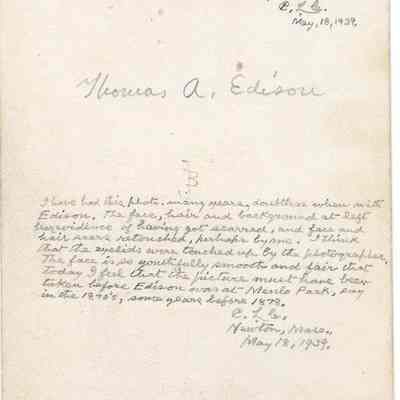 C. L. C.
May, 18, 1939.
Thomas A. Edison
I have had this photo. many years, doubtless when with
Edison. The face, hair and background at left
bore evidence of having got scarred, and face and
hair scars retouched, perhaps by me. I think
that the eyelids were touched up by the photographer.
The face is so youthfully smooth and fair that
today I feel that the picture must have been
taken before Edison was at Menlo Park, say
in the 1870's, some years before 1878.
C. L. C.
Newton, Mass.,
May 18, 1939.